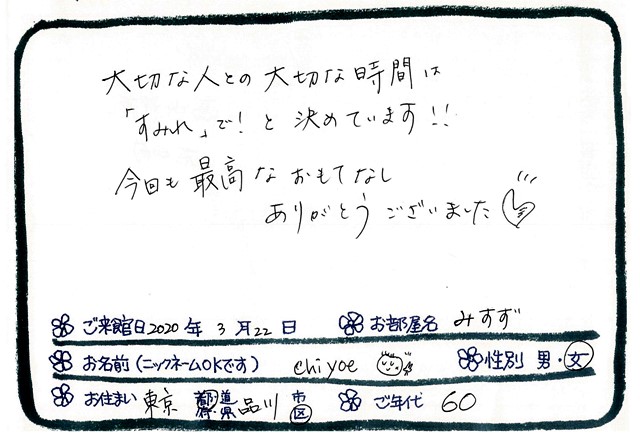 大切な人との大切な時間は
「すみれ」で!と決めています!!
今回も最高なおもてなし
ありがとうございました
ご来館日2020年3月22日 お部屋名 みすず
お名前(ニックネームOKです) chiyoe 性別 男・女
お住まい 東京 都道府県 品川 市区 ご年代 60